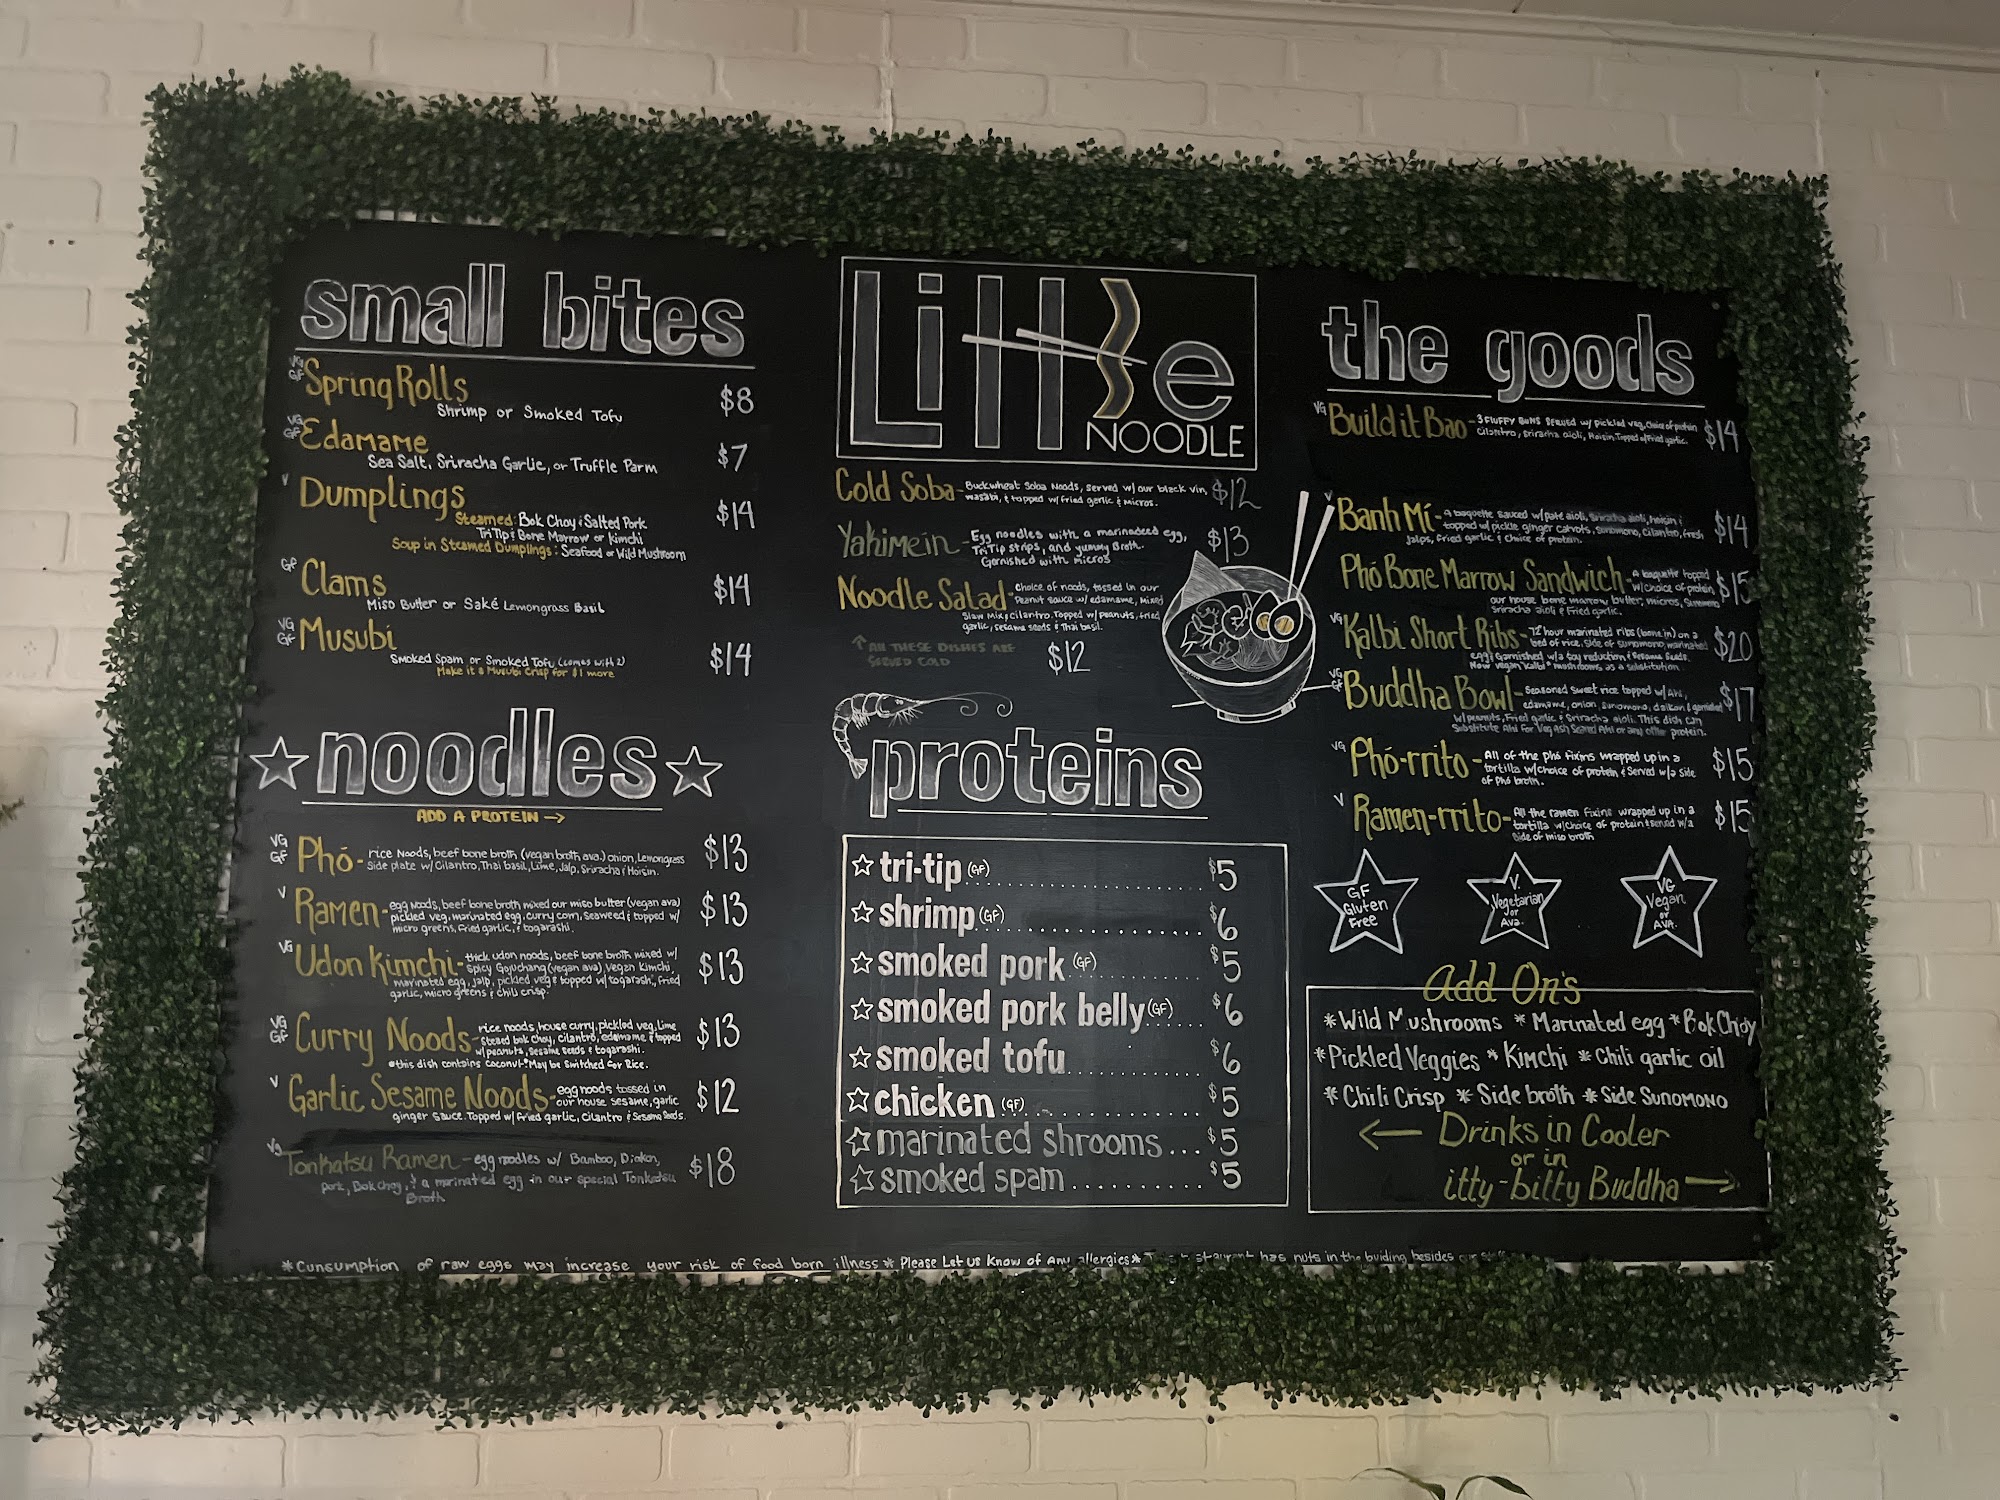 small bites
VG
GF
Spring Rolls
Shrimp or Smoked Tofu
$8
VG
GF
Edamame
Sea Salt, Sriracha Garlic, or Truffle Parm
$7
V
Dumplings
Steamed: Bok Choy & Salted Pork
Tri Tip & Bone Marrow or Kimchi
Soup in Steamed Dumplings: Seafood or Wild Mushroom
$14
GF
Clams
Miso Butter or Saké Lemongrass Basil
$14
VG
GF
Musubi
Smoked Spam or Smoked Tofu (comes with 2)
Make it a Musubi Crisp for $1 more
$14
noodles
ADD A PROTEIN →
VG
GF
Phó - rice Noods, beef bone broth (vegan broth ava.) onion, Lemongrass
Side plate w/ Cilantro, Thai basil, Lime, Jalp, Sriracha & Hoisin.
$13
V
Ramen - egg Noods, beef bone broth mixed our miso butter (vegan ava)
pickled veg, marinated egg, curry corn, seaweed & topped w/
micro greens, fried garlic, & togarashi.
$13
VG
Udon Kimchi - thick udon noods, beef bone broth mixed w/
Spicy Gojuchang (vegan ava), Vegan Kimchi,
marinated egg, jalp, pickled veg & topped w/ togarashi, fried
garlic, micro greens & chili crisp.
$13
VG
GF
Curry Noods - rice noods, house curry, pickled veg, Lime
steaed bok choy, cilantro, edamame & topped
w/ peanuts, sesame seeds & togarashi.
*this dish contains coconut* May be Switched for Rice.
$13
V
Garlic Sesame Noods - egg noods tossed in
our house sesame, garlic
ginger sauce. Topped w/ fried garlic, Cilantro & Sesame Seeds.
$12
Vg
Tonkatsu Ramen - egg noodles w/ Bamboo, Diakon,
pork, Bok choy, & a marinated egg in our special Tonkatsu
Broth
$18
Little
NOODLE
Cold Soba - Buckwheat Soba Noods, served w/ our black vin,
wasabi, & topped w/ fried garlic & micros.
$12
Yakimein - Egg noodles with a marinadeed egg,
Tri Tip strips, and yummy Broth.
Garnished with micros
$13
Noodle Salad - Choice of noods, tossed in our
Peanut sauce w/ edamame, Mixed
Slaw Mix, cilantro. Topped w/ peanuts, fried
garlic, sesame seeds & Thai basil.
↑ All THESE DISHES ARE
SERVED COLD
$12
proteins
☆ tri-tip (GF) $5
☆ shrimp (GF) $6
☆ smoked pork (GF) $5
☆ smoked pork belly (GF) $6
☆ smoked tofu $6
☆ chicken (GF) $5
☆ marinated shrooms $5
☆ smoked spam $5
the goods
VG
Build it Bao - 3 FLUFFY BUNS Served w/ pickled veg, choice of protein
Cilantro, sriracha aioli, Hoisin. Topped w/ Fried garlic.
$14
V
Banh Mí - A baguette sauced w/ pate aioli, sriracha aioli, hoisin &
topped w/ pickle ginger carrots, sunomono, cilantro, fresh
Jalps, fried garlic & choice of protein.
$14
Phó Bone Marrow Sandwich - A baguette topped
w/ choice of protein
our house bone marrow butter, micros, Sunomono
Sriracha aioli & Fried garlic.
$15
VG
Kalbi Short Ribs - 72 hour marinated ribs (bone in) on a
bed of rice, side of sunomono, marinated
egg & Garnished w/ a soy reduction & Sesame Seeds.
Now vegan "Kalbi" mushrooms as a substitution
$20
VG
GF
Buddha Bowl - Seasoned sweet rice topped w/ Ahi,
edamame, onion, sunomono, daikon & garnished
w/ peanuts, Fried garlic & Sriracha aioli. This dish can
Substitute Ahi for Veg Ash Seared Ahi or any other protein.
$17
VG
Phó-rrito - All of the phó fixins wrapped up in a
tortilla w/ choice of protein & Served w/ a Side
of phó broth.
$15
V
Ramen-rrito - All the ramen fixins wrapped up in a
tortilla w/ choice of protein & served w/ a
Side of miso broth
$15
GF
Gluten
Free
V.
Vegetarian
or
Ava.
VG
Vegan
or
AVA.
Add On's
*Wild Mushrooms *Marinated egg *Bok Choy
*Pickled Veggies *Kimchi *Chili garlic oil
*Chili Crisp *Side broth *Side Sunomono
← Drinks in Cooler
or in
itty-bitty Buddha →
*Cunsumption of raw eggs may increase your risk of food born illness * Please Let Us Know of Any allergies* has nuts in the buiding besides our